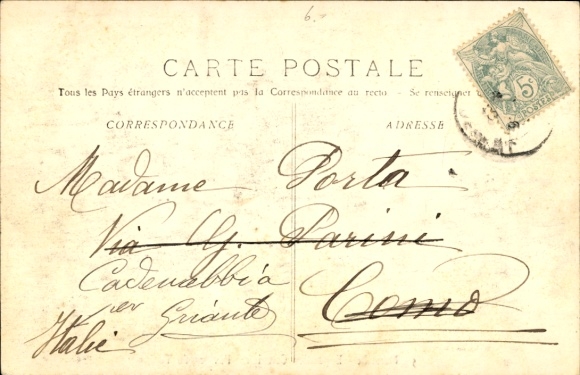 6.
CARTE POSTALE
Tous les Pays étrangers n'acceptent pas la Correspondance au recto. - Se renseigner
CORRESPONDANCE ADRESSE
5c
POSTES
Madame Porta
Via G. Parini
Cadenabbia
Como
per Griante
Italie